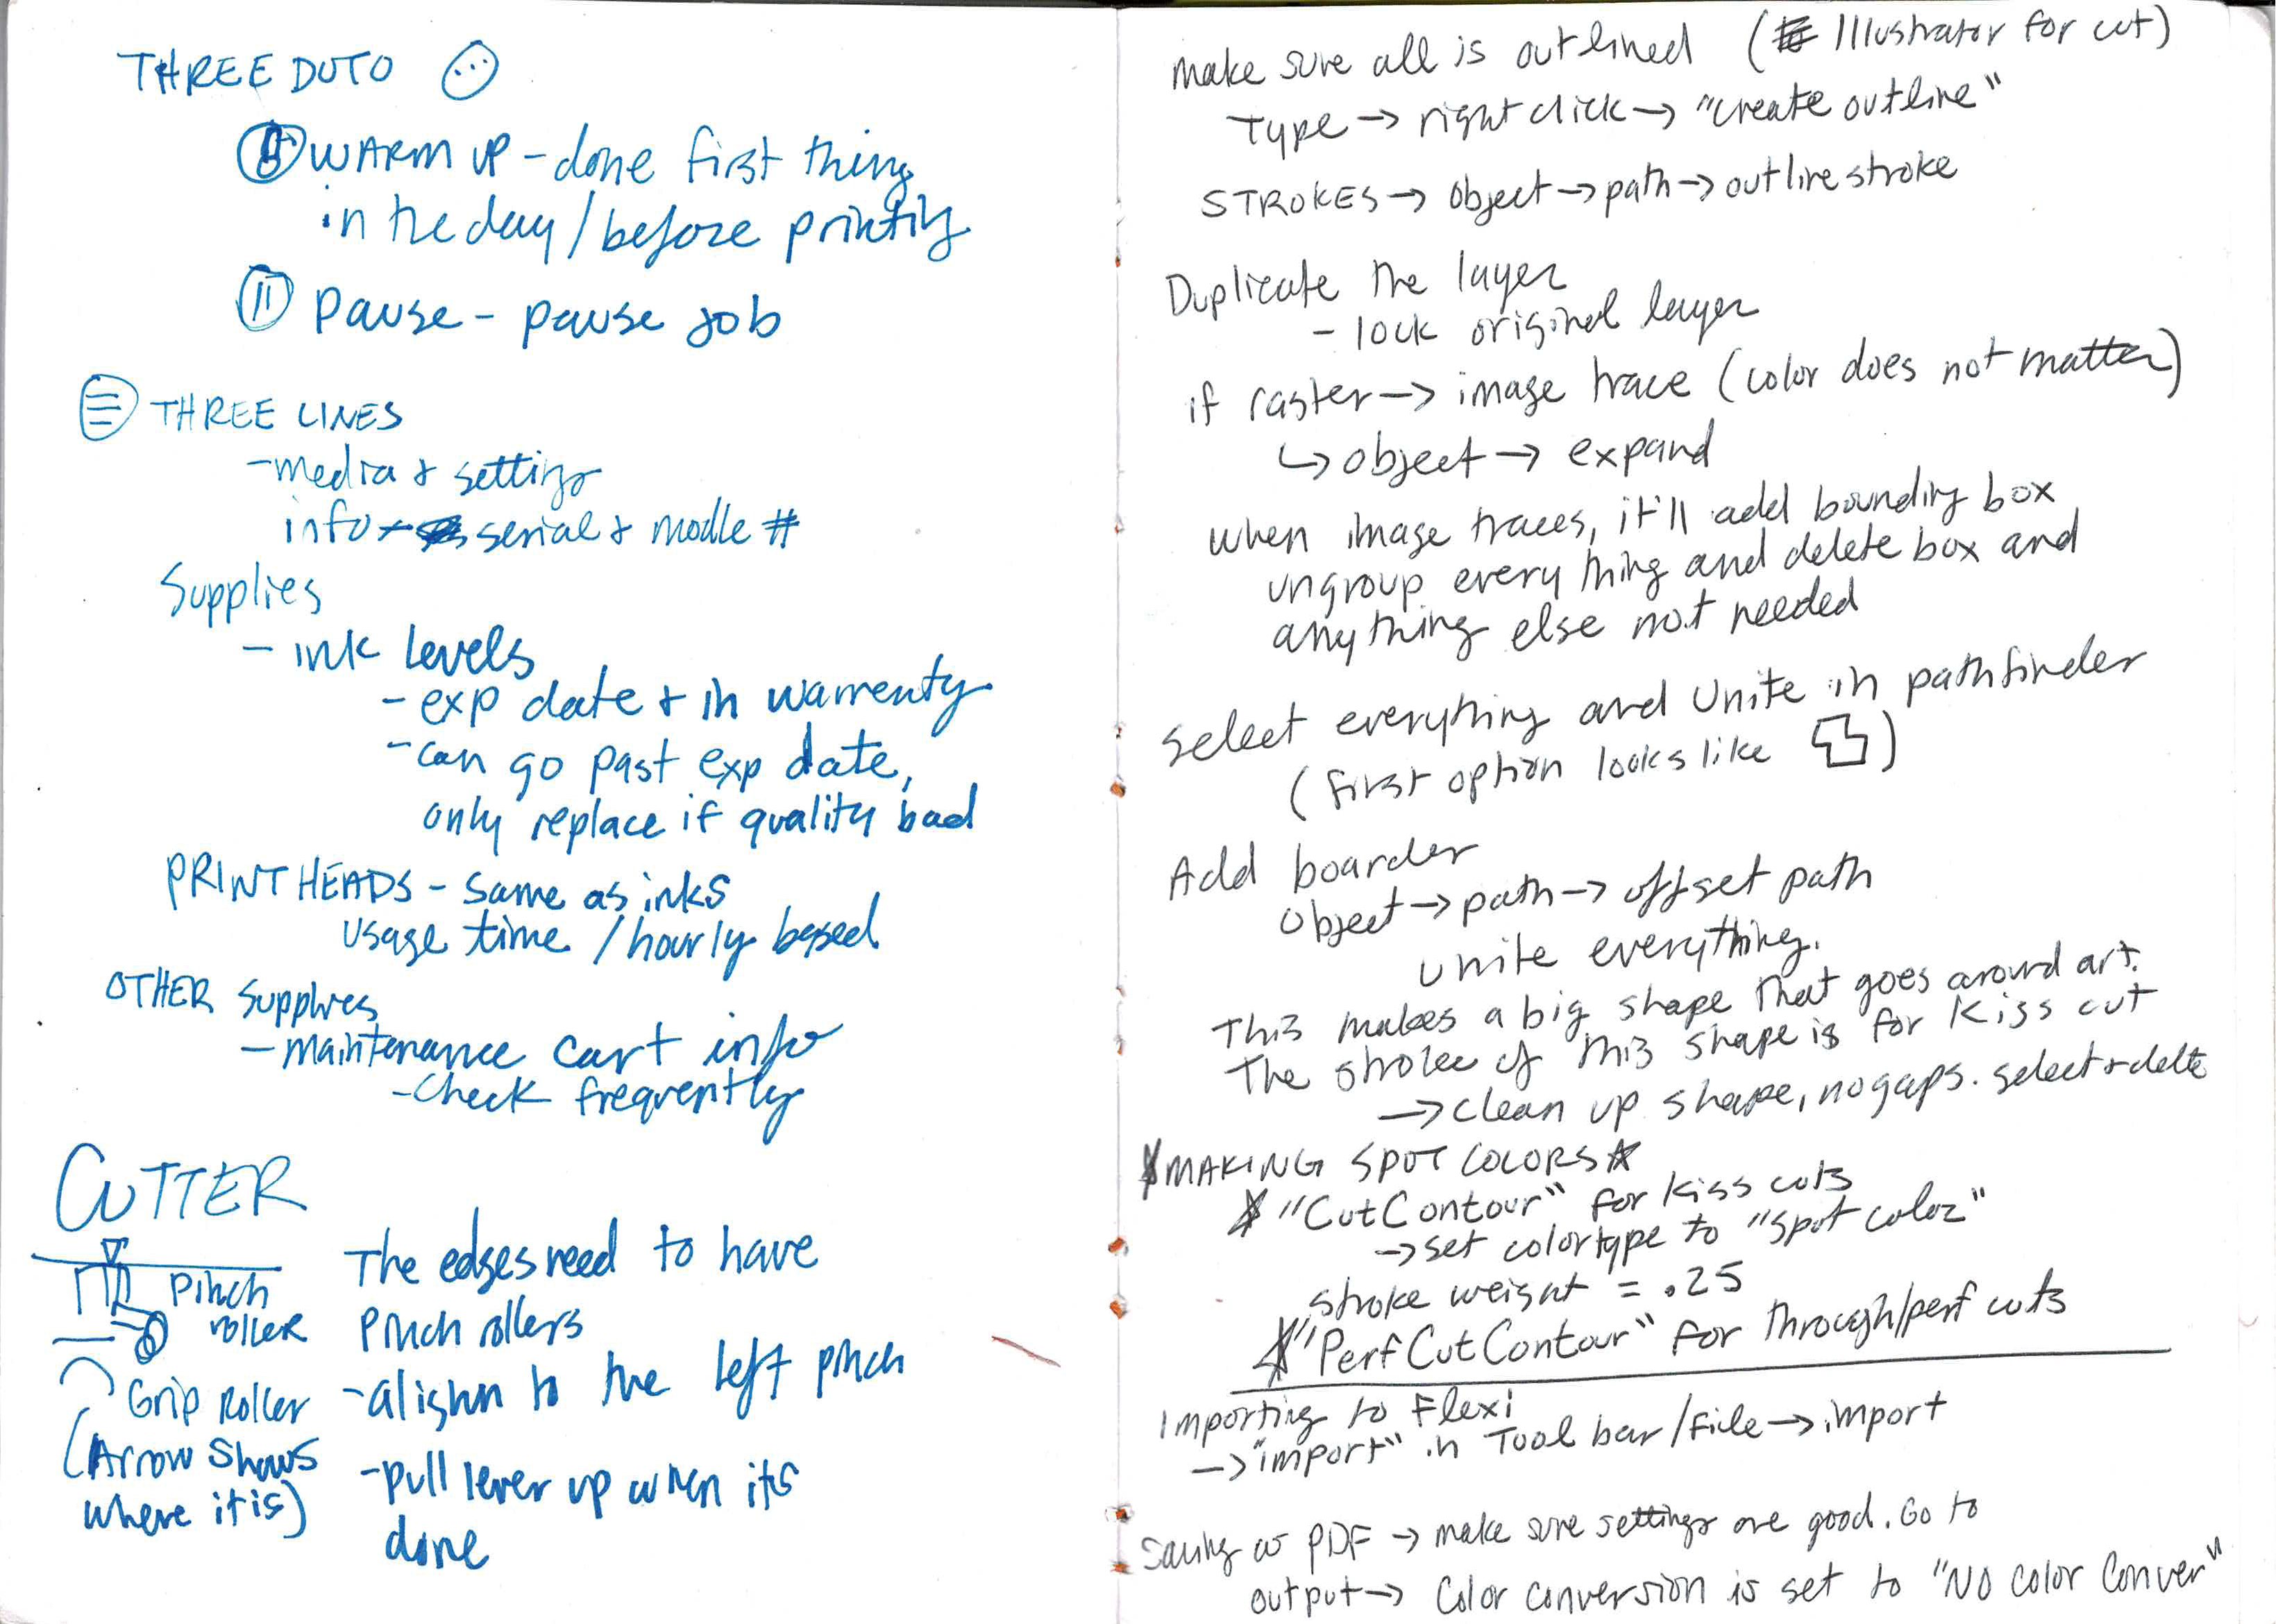 THREE DOTO
WARM UP - done first thing
in the day / before printing
Pause - pause job
THREE LINES
- media & setting
info serial & modle #
Supplies
- ink levels
- exp date & in warrenty
- can go past exp date,
only replace if quality bad
PRINT HEADS - same as inks
usage time / hourly based
OTHER supplies
- maintenance cart info
- check frequently
CUTTER
Pinch
roller
Grip Roller
(Arrow shows
where it is)
The edges need to have
Pinch rollers
- alighn to the left pinch
- pull lever up when its
done
make sure all is outlined (Illustrator for cut)
Type → right click → "create outline"
STROKES → object → path → outline stroke
Duplicate the layer
- lock original layer
if raster → image trace (color does not matter)
↳ object → expand
when image traces, it'll add bounding box
ungroup everything and delete box and
anything else not needed
select everything and Unite in pathfinder
(first option looks like )
Add boarder
object → path → offset path
unite everything.
This makes a big shape that goes around art.
The stroke of this shape is for kiss cut
→ clean up shape, no gaps. select & delte
MAKING SPOT COLORS
"CutContour" for kiss cuts
→ set colortype to "spot color"
stroke weight = .25
"PerfCutContour" for through/perf cuts
Importing to Flexi
→ "import" in Tool bar / file → import
Saving as PDF → make sure settings are good. Go to
output → Color conversion is set to "No color Conver"